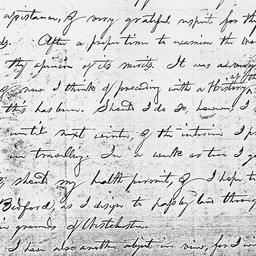 of very grateful respect for the
After a proper time to examine the
thy opinion of its merits. It was
now I think of preceding with a History
of the
this has been. Should I do so, however, I
until next winter, & the interim I
in travelling. In a week or two I
should my health permit, & I hope to
Bedford, as I design to pass by land through
grounds of Westchester.
I have also another object in view, for I